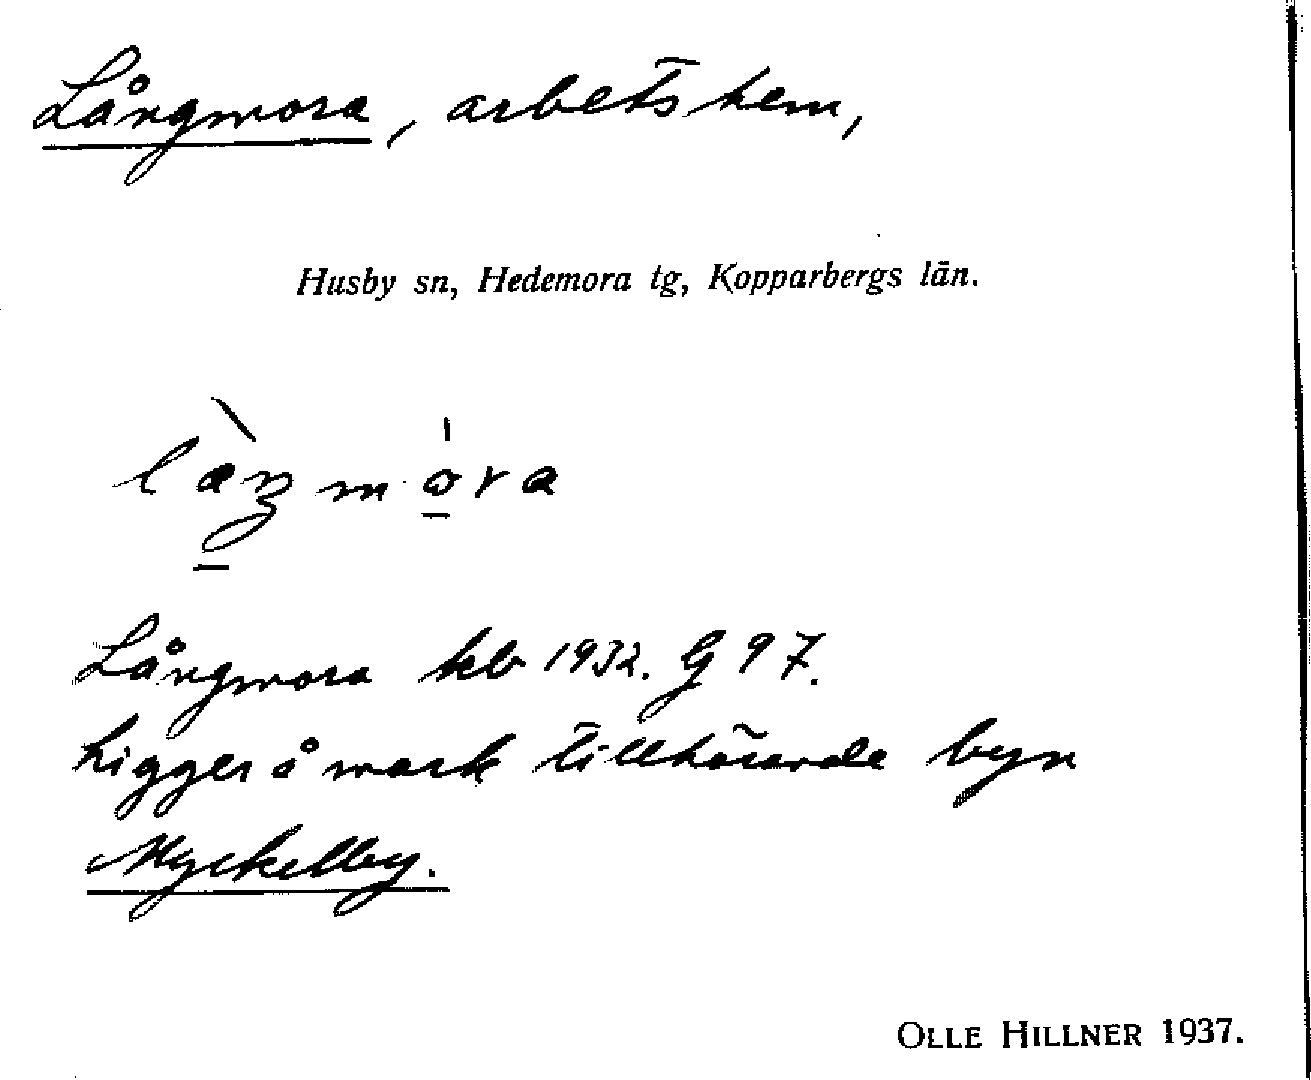 Långmora, arbetshem,
Husby sn, Hedemora tg, Kopparbergs län.
Långmora kb 1932. G 97.
Ligger å mark tillhörande byn
Myckelby.
OLLE HILLNER 1937.